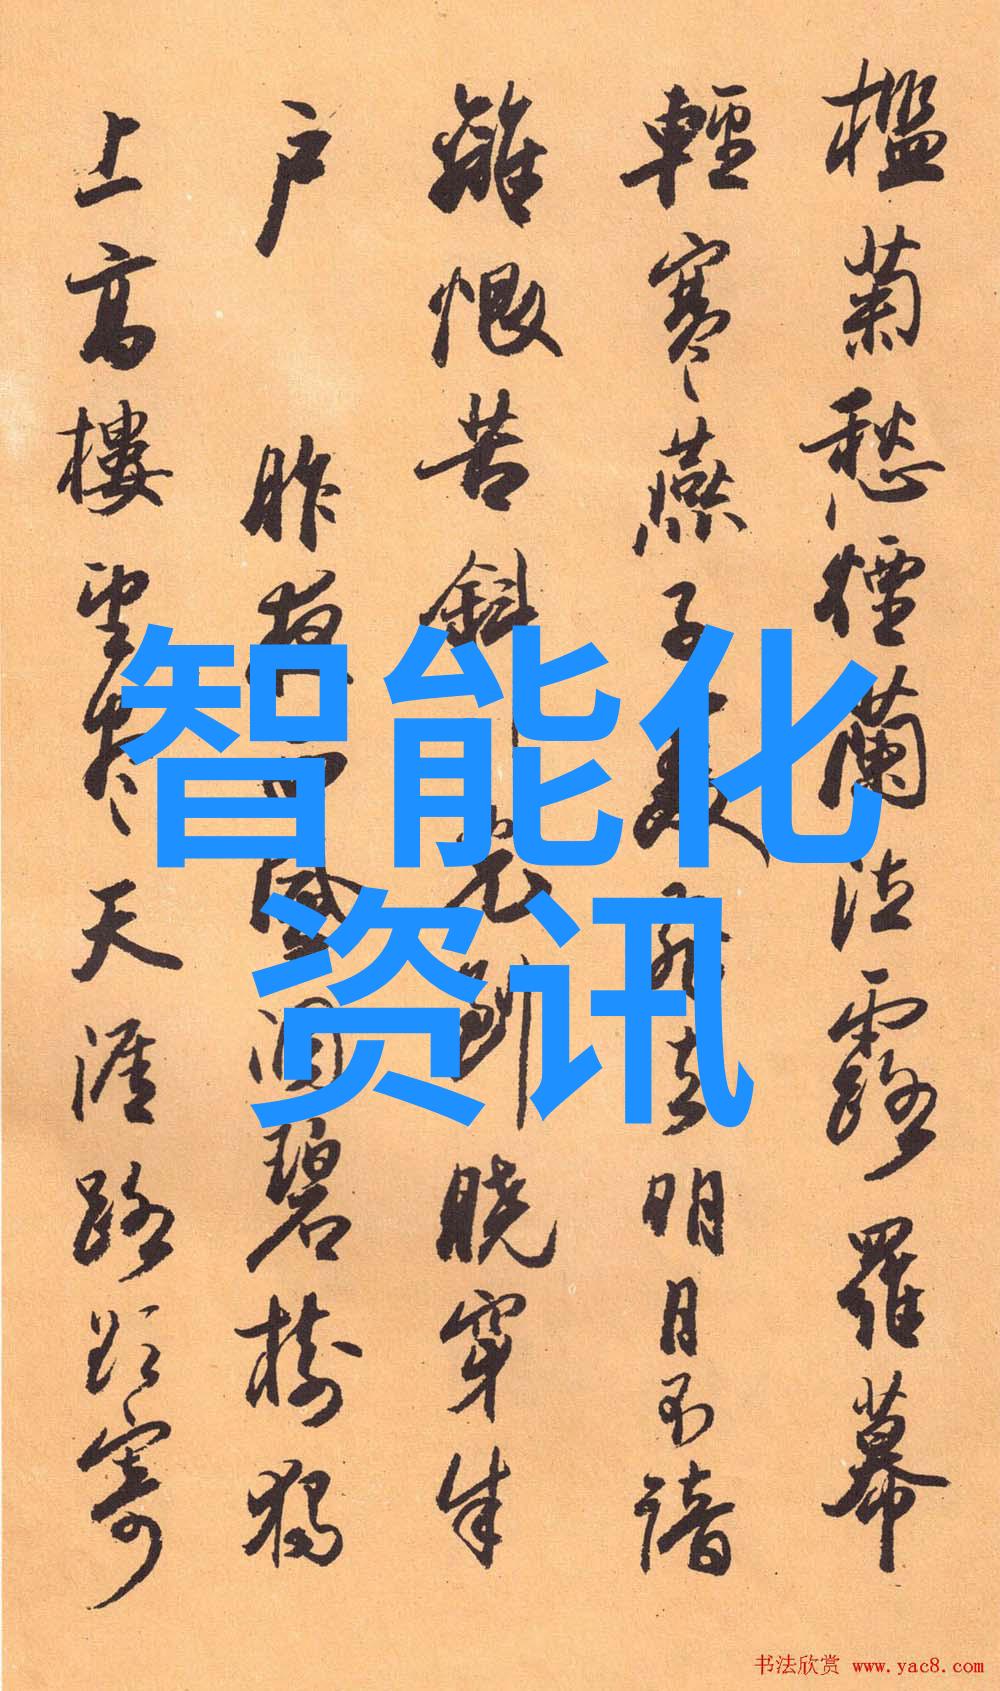 檻菊愁煙蘭泣露羅幕
輕寒燕子飛去明月不諳
離恨苦斜光到曉穿朱
户 昨夜風凋碧樹獨
上高樓望盡天涯路欲寄
智能化
资讯
书法欣赏 www.yac8.com